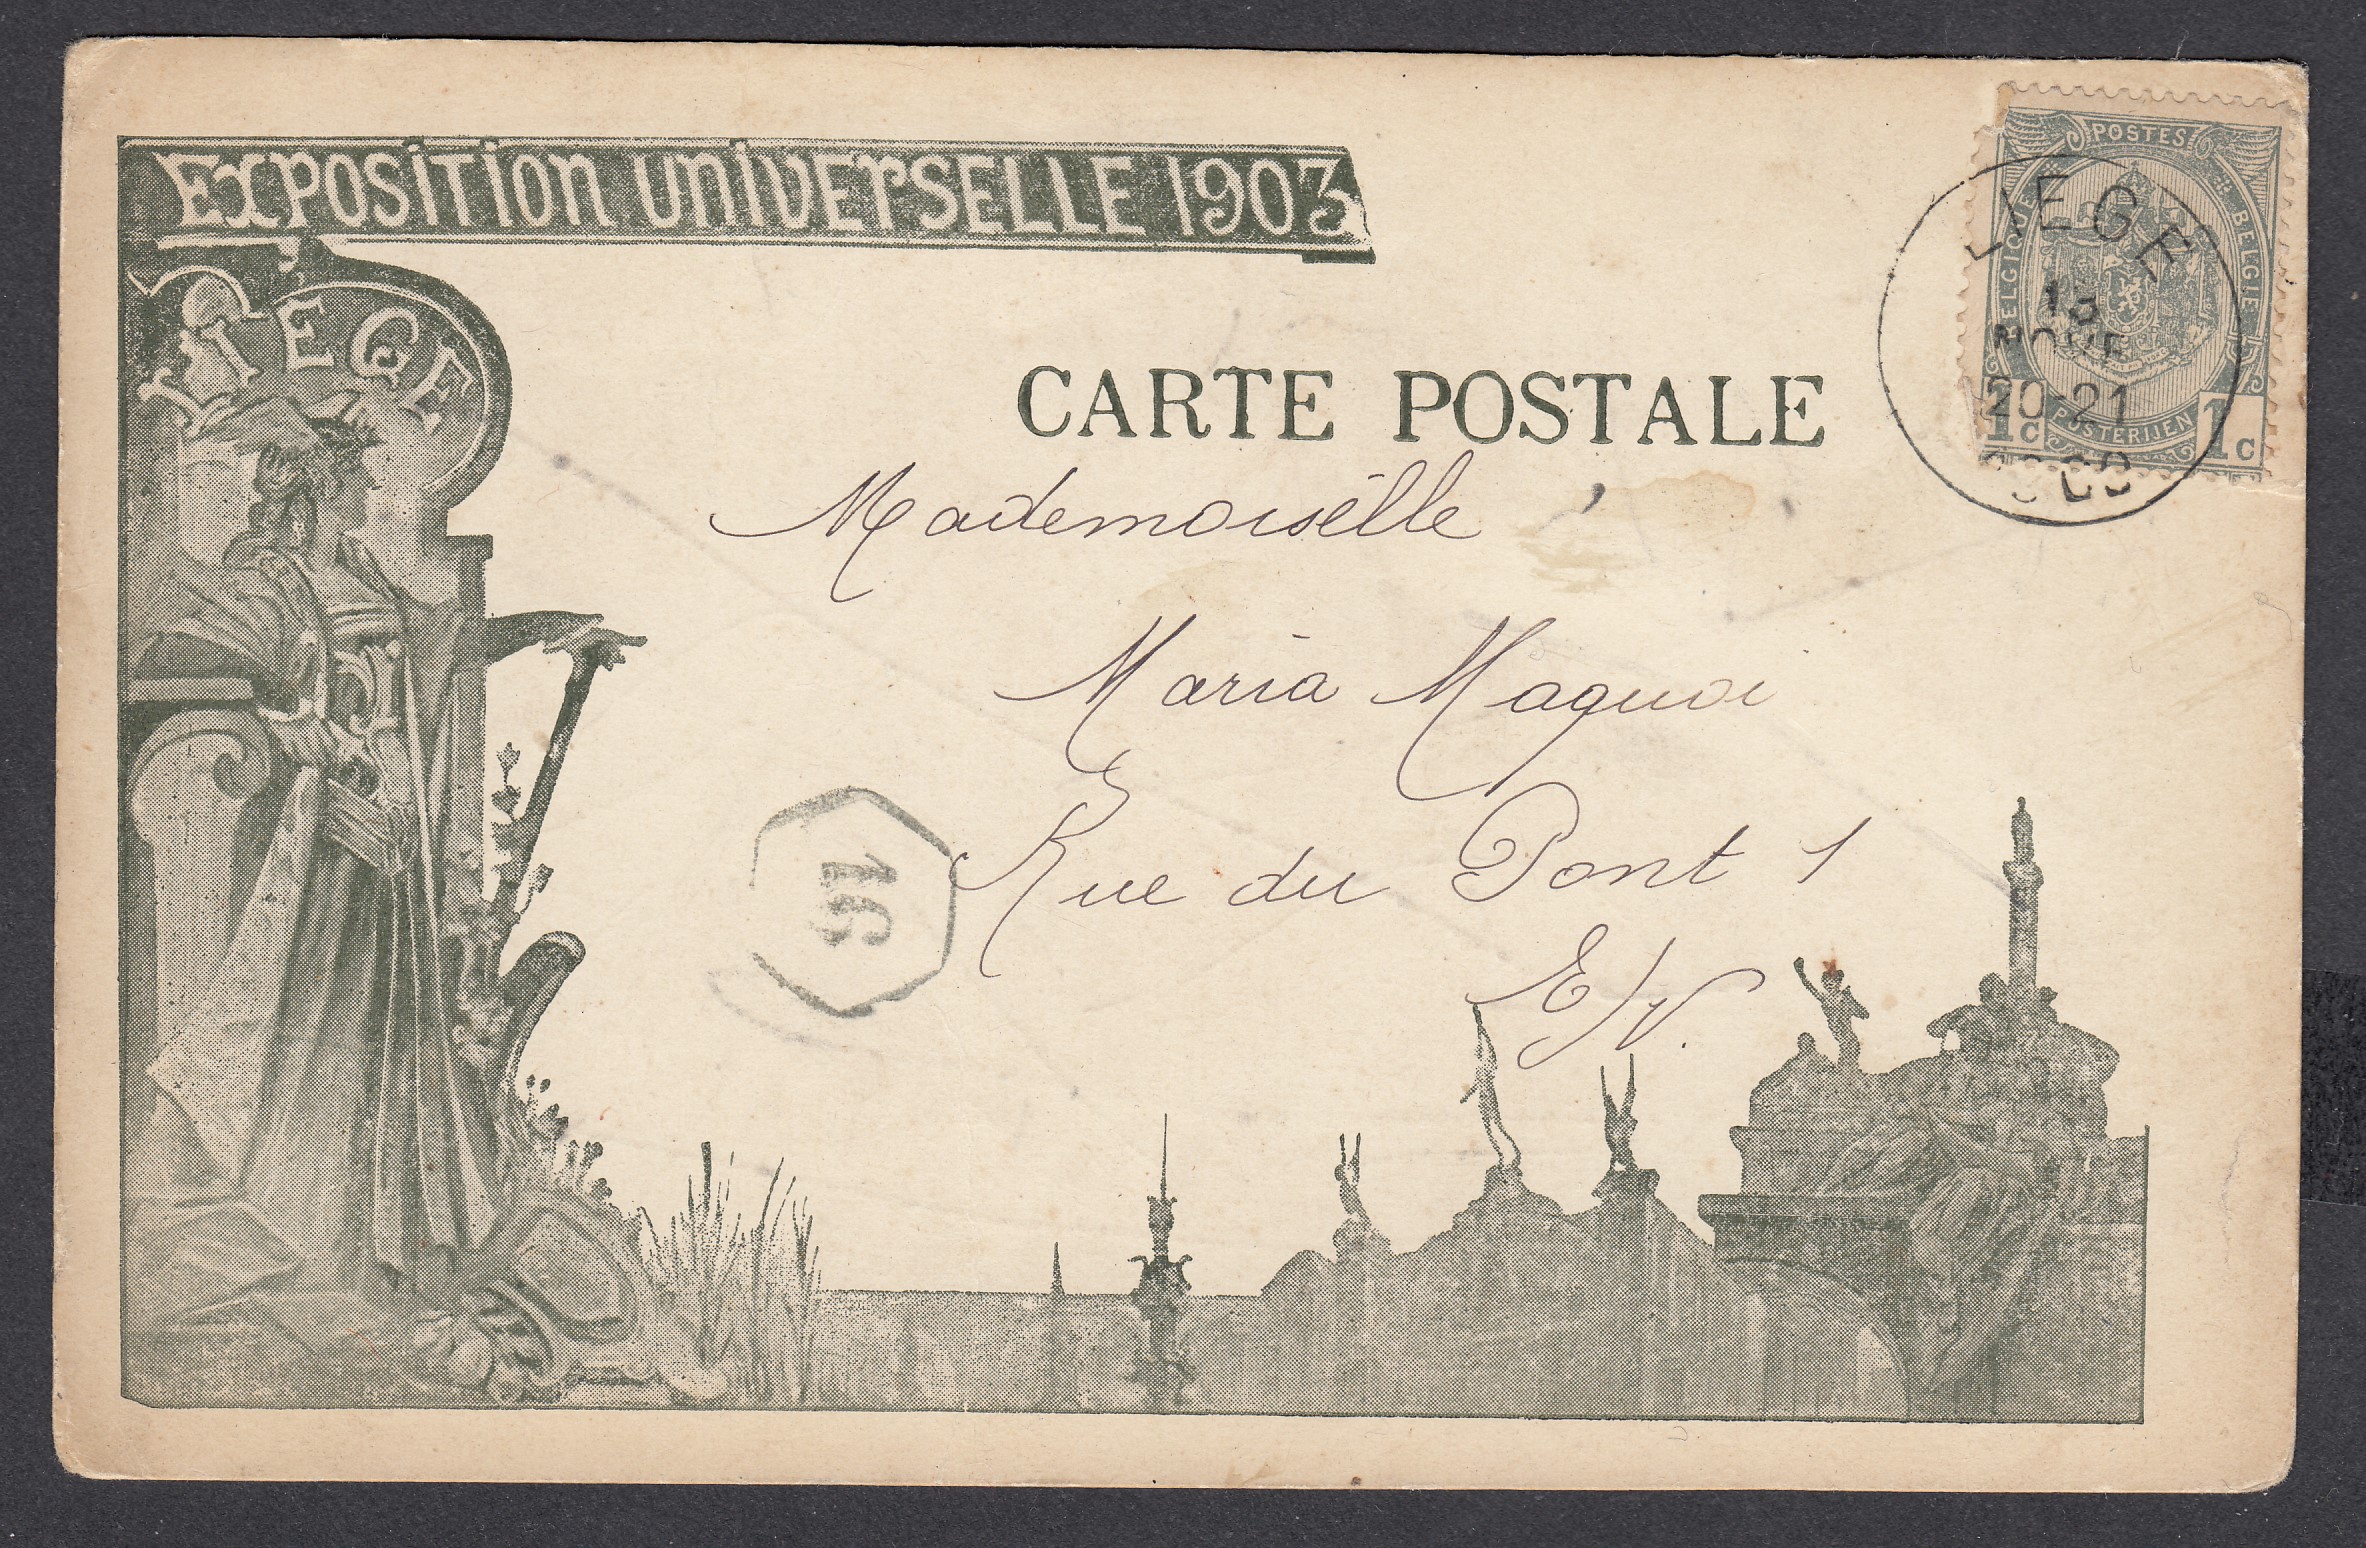 EXPOSITION UNIVERSELLE 1903
LIEGE
CARTE POSTALE
POSTES
BELGIQUE
BELGIE
POSTERIJEN
1c
1c
LIEGE
NOVE
20-21
Mademoiselle
Maria Maquoi
Rue du Pont 1
E/V.